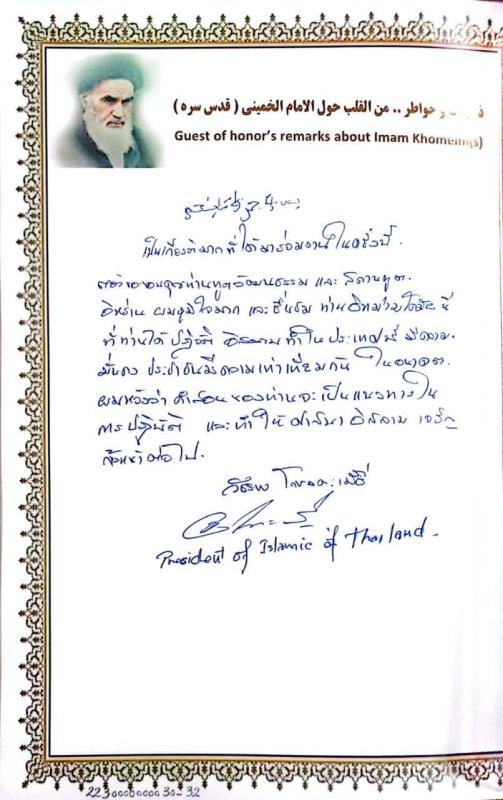 وخواطر .. من القلب حول الامام الخميني ( قدس سره )
Guest of honor's remarks about Imam Khomeini(s)
เป็นเกียรติมากที่ได้มาร่วมงานในครั้งนี้.
ต้องขอบคุณท่านทูตวัฒนธรรม และ สถานทูต.
อิหร่าน ผมภูมิใจมาก และชื่นชม ท่านอิหม่ามโคมัยนี
ที่ท่านได้ ปฏิวัติ อิสลาม ทำใน ประเทศนี้ มีความ.
มั่นคง ประชาชนมีความเท่าเทียมกัน ในอนาคต.
ผมหวังว่า คำสอนของท่านจะ เป็นแนวทางใน
การปฏิบัติ และทำให้ ศาสนา อิสลาม เจริญ
ก้าวหน้าต่อไป.
President of Islamic of Thailand -
223000000030-32